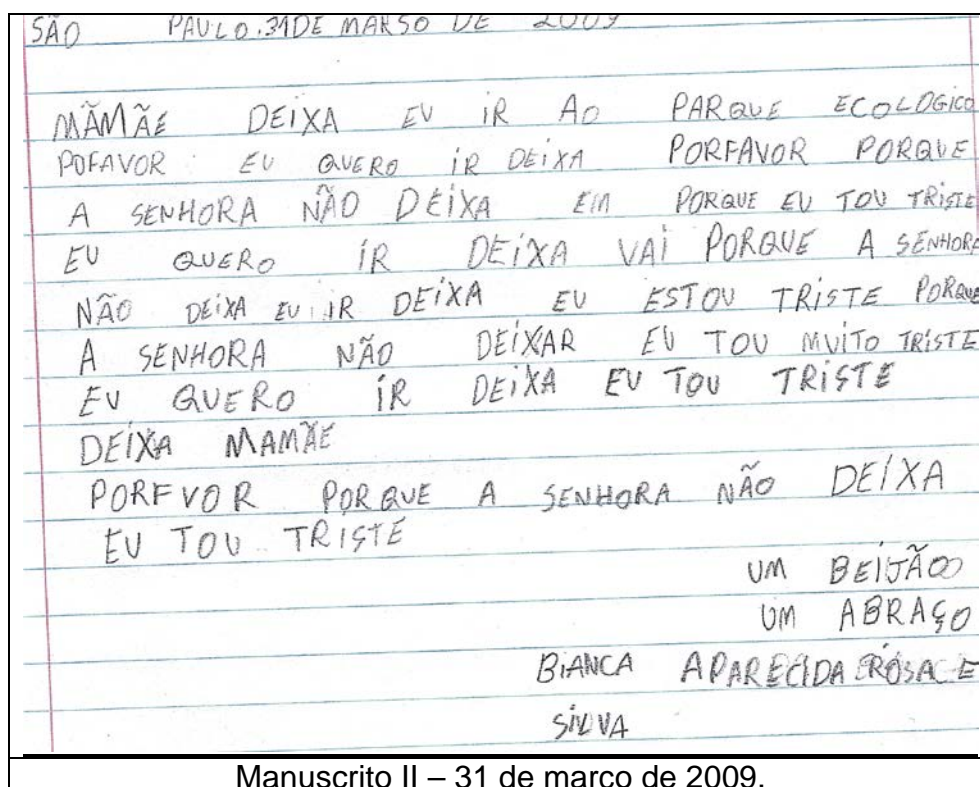 SÃO PAULO.31DE MARSO DE 2009
MÃMÃE DEIXA EU IR AO PARQUE ECOLOGICO
POFAVOR EU QUERO IR DEIXA PORFAVOR PORQUE
A SENHORA NÃO DEIXA EM PORQUE EU TOU TRISTE
EU QUERO ÍR DEÍXA VAI PORQUE A SENHORA
NÃO DEIXA EU IR DEIXA EU ESTOU TRISTE PORQUE
A SENHORA NÃO DEÍXAR EU TOU MUITO TRISTE
EU QUERO ÍR DEIXA EU TOU TRISTE
DEÍXA MAMÃE
PORFVOR PORQUE A SENHORA NÃO DEIXA
EU TOU TRISTE
UM BEIJÃO
UM ABRAÇO
BIANCA APARECIDA ROSA E
SILVA
Manuscrito II – 31 de março de 2009.